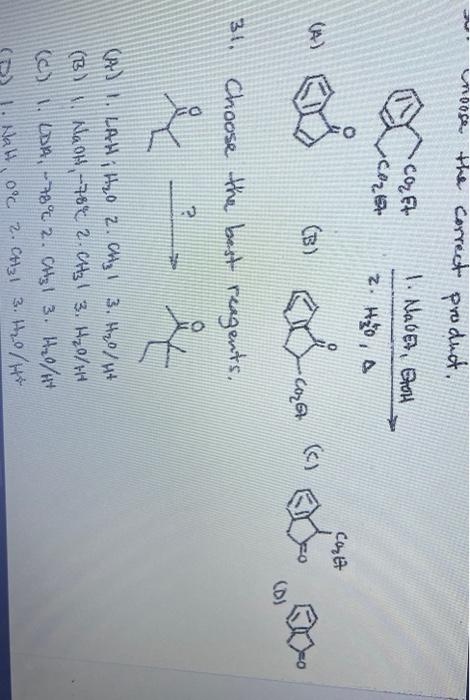 Choose the correct product.
CO2Et
CO2Et
1. NaOEt, EtOH
2. H3O, Δ
(A)
O
(B)
O
CO2Et
(C)
CO2Et
=O
(D)
=O
31. Choose the best reagents.
O
?
O
(A) 1. LAH; H2O 2. CH3I 3. H2O/H+
(B) 1. NaOH, -78°C 2. CH3I 3. H2O/H+
(C) 1. LDA, -78°C 2. CH3I 3. H2O/H+
(D) 1. NaH, 0°C 2. CH3I 3. H2O/H+